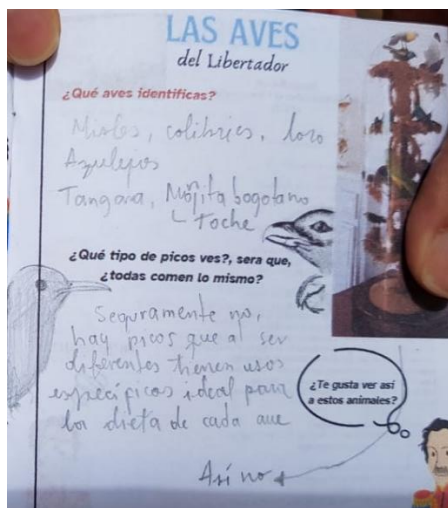 LAS AVES
del Libertador
¿Qué aves identificas?
Mirlos, colibries, loro
Azulejos
Tangara, Moñita bogotano
Toche
¿Qué tipo de picos ves?, sera que,
¿todas comen lo mismo?
Seguramente no,
hay picos que al ser
diferentes tienen usos
específicos ideal para
la dieta de cada ave
¿Te gusta ver así
a estos animales?
Así no